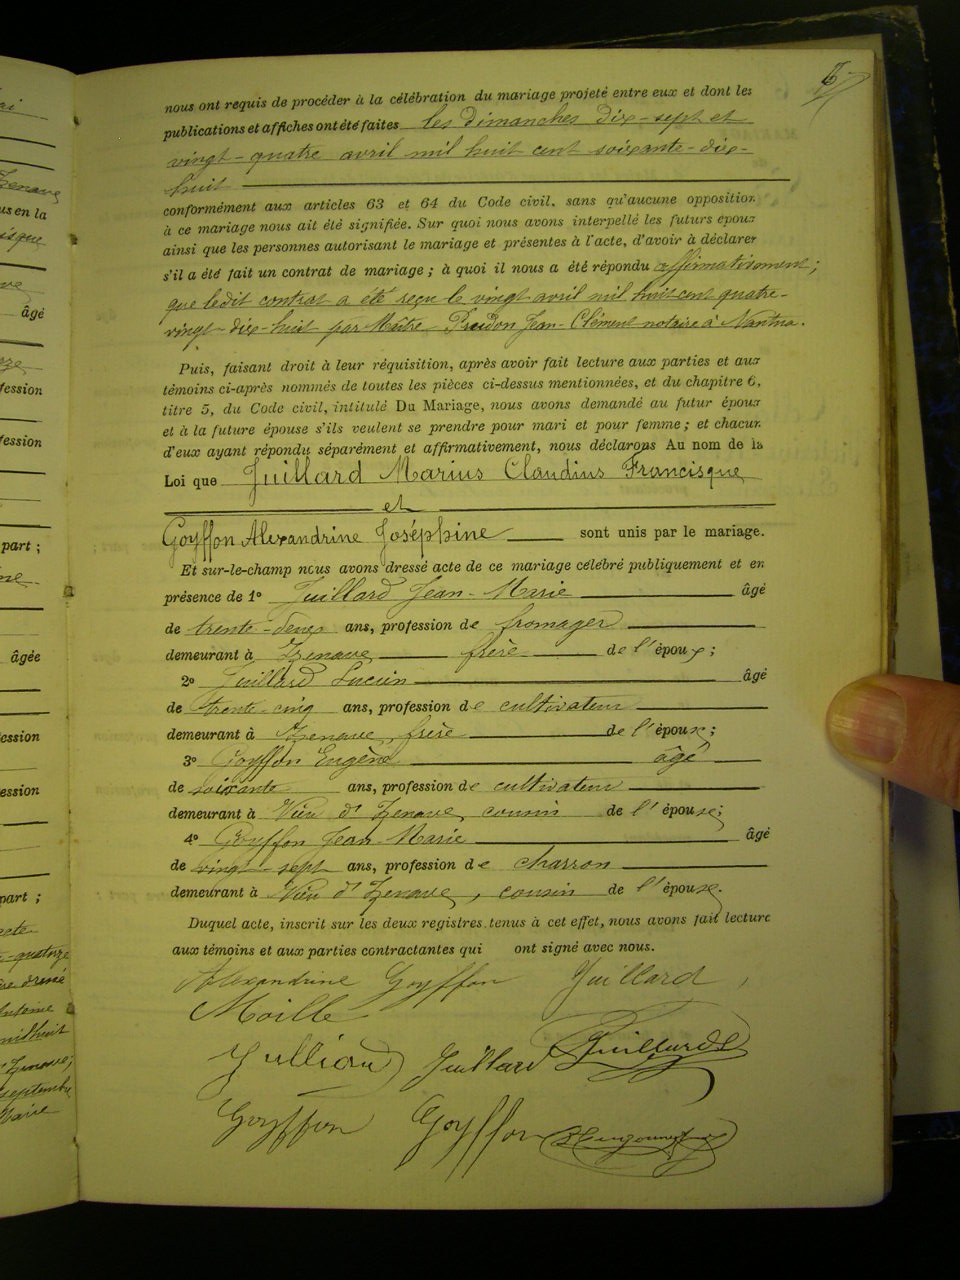 nous ont requis de procéder à la célébration du mariage projeté entre eux et dont les
publications et affiches ont été faites les dimanches dix-sept et
vingt-quatre avril mil huit cent soixante-dix-
huit
conformément aux articles 63 et 64 du Code civil, sans qu'aucune opposition
à ce mariage nous ait été signifiée. Sur quoi nous avons interpellé les futurs époux
ainsi que les personnes autorisant le mariage et présentes à l'acte, d'avoir à déclarer
s'il a été fait un contrat de mariage ; à quoi il nous a été répondu affirmativement ;
que ledit contrat a été reçu le vingt avril mil huit cent quatre-
vingt-dix-huit par Maître Jean-Clément notaire à Nantua.
Puis, faisant droit à leur réquisition, après avoir fait lecture aux parties et aux
témoins ci-après nommés de toutes les pièces ci-dessus mentionnées, et du chapitre 6,
titre 5, du Code civil, intitulé Du Mariage, nous avons demandé au futur époux
et à la future épouse s'ils veulent se prendre pour mari et pour femme ; et chacun
d'eux ayant répondu séparément et affirmativement, nous déclarons Au nom de la
Loi que Juillard Marius Claudius Francisque
et
Goyffon Alexandrine Joséphine sont unis par le mariage.
Et sur-le-champ nous avons dressé acte de ce mariage célébré publiquement et en
présence de 1° Juillard Jean-Marie âgé
de trente-deux ans, profession de fromager
demeurant à Izenave frère de l'époux ;
2° Juillard Lucien âgé
de trente-cinq ans, profession de cultivateur
demeurant à Izenave, frère de l'époux ;
3° Goyffon Eugène âgé
de soixante ans, profession de cultivateur
demeurant à Vieu d'Izenave, cousin de l'épouse ;
4° Goyffon Jean Marie âgé
de vingt-sept ans, profession de charron
demeurant à Vieu d'Izenave, cousin de l'épouse.
Duquel acte, inscrit sur les deux registres tenus à cet effet, nous avons fait lecture
aux témoins et aux parties contractantes qui ont signé avec nous.
Alexandrine Goyffon Juillard
Moille
Juillard Juillard
Goyffon Goyffon